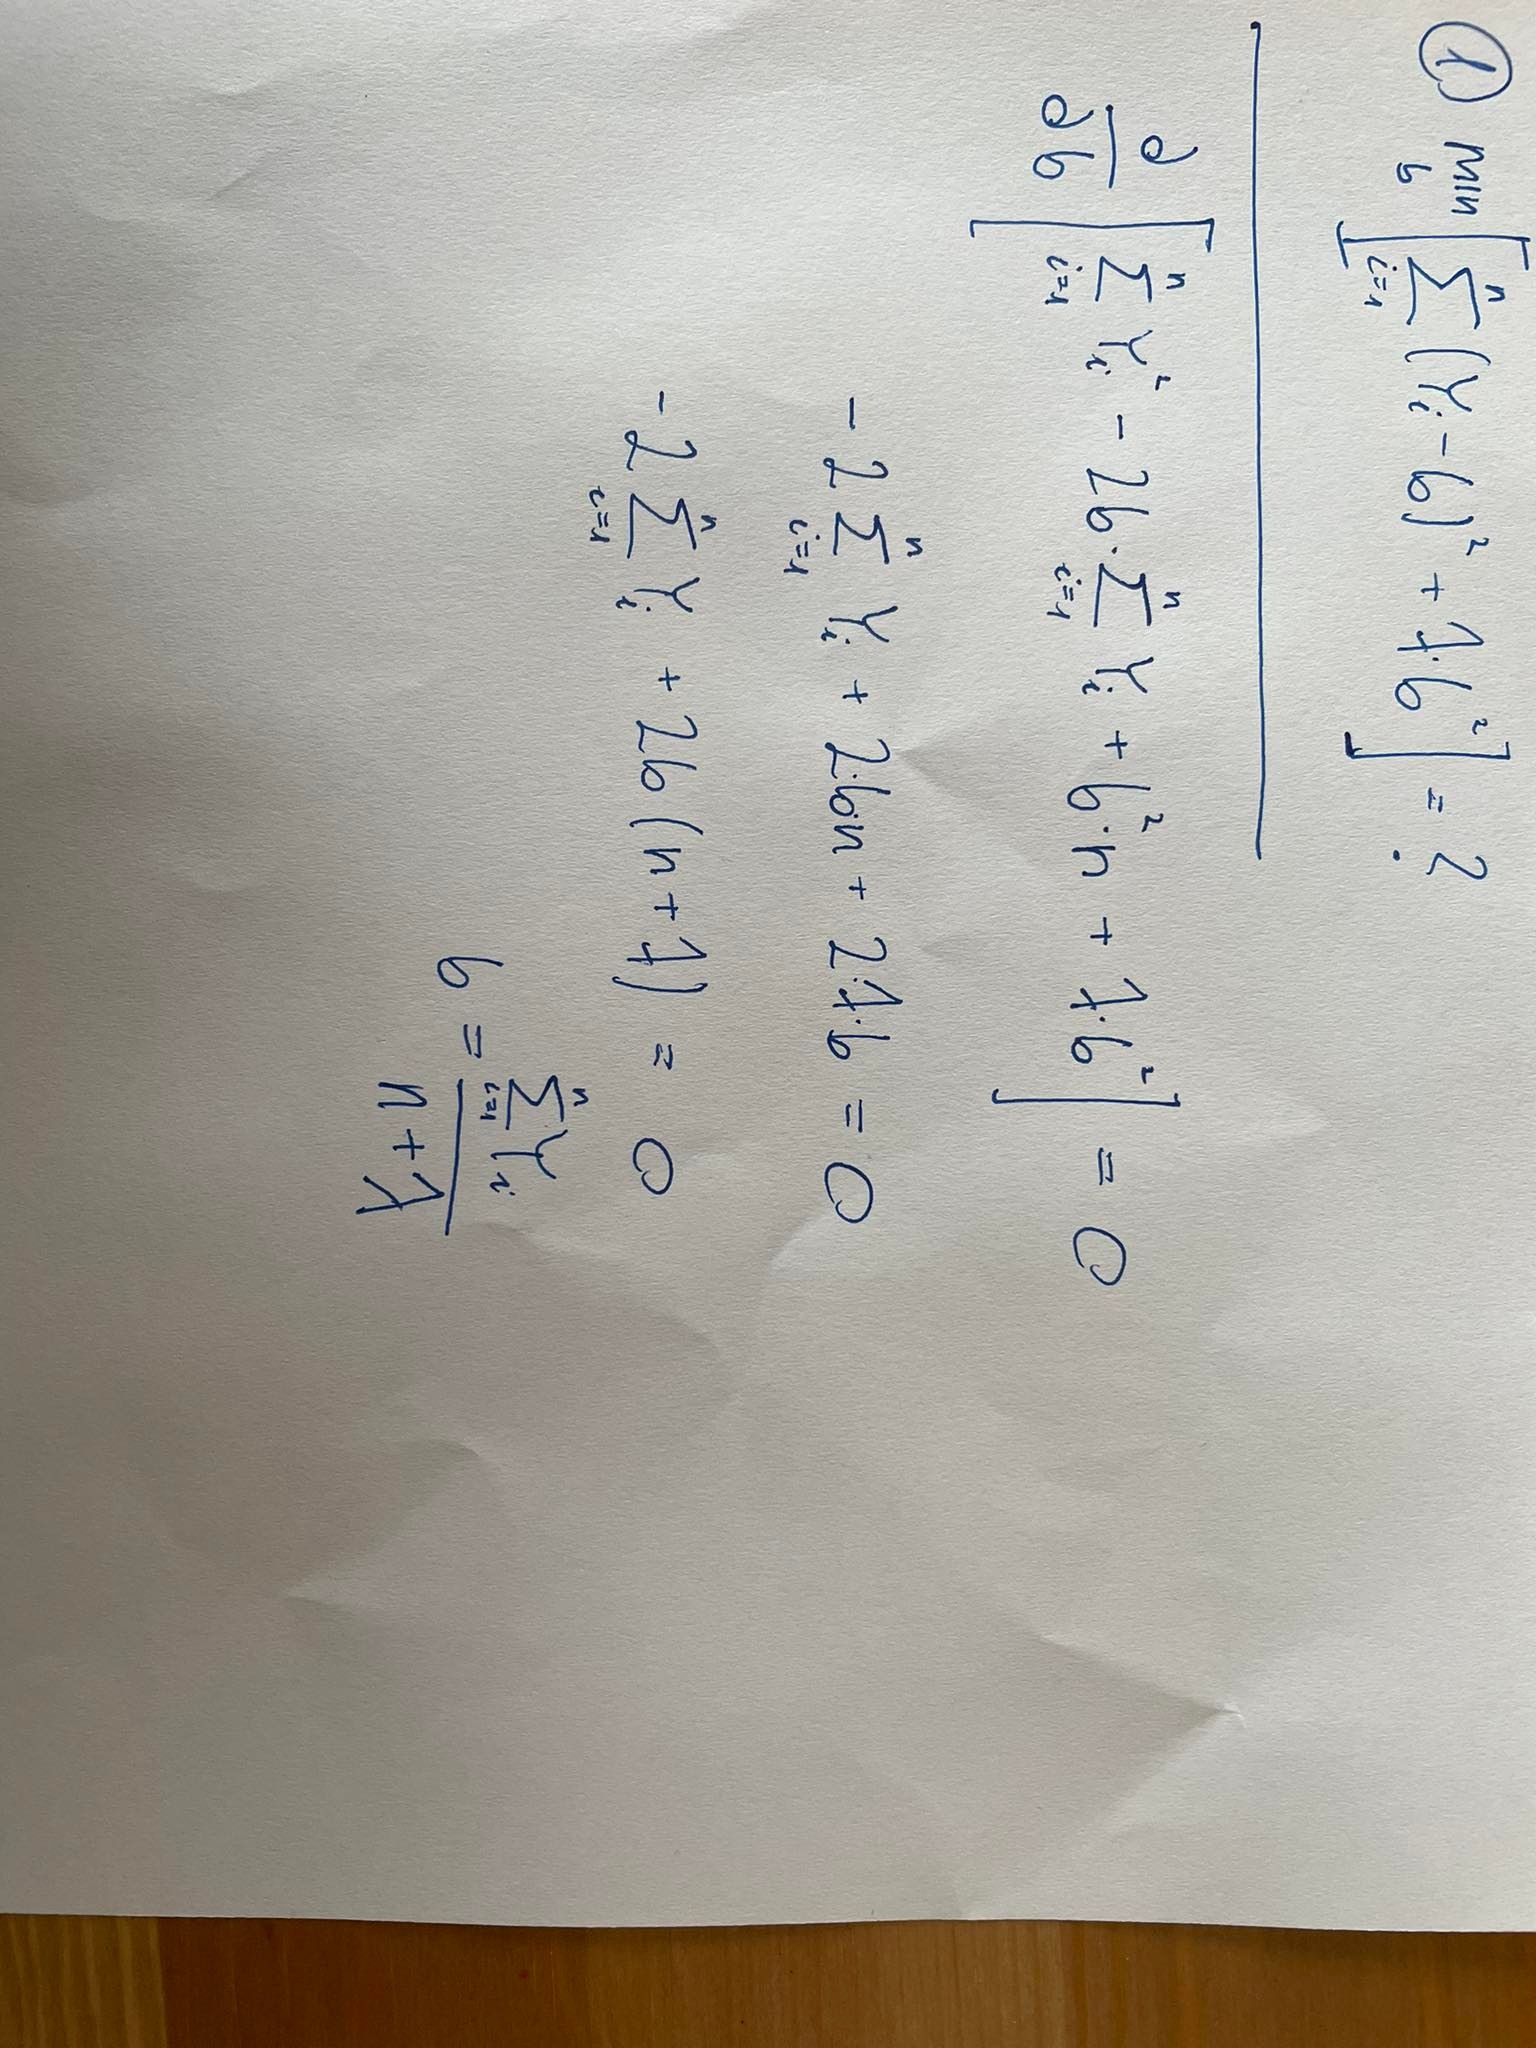 ① min_b [ ∑_{i=1}^{n} (Y_i - b)² + λ·b² ] = ?
∂/∂b [ ∑_{i=1}^{n} Y_i² - 2b·∑_{i=1}^{n} Y_i + b²·n + λ·b² ] = 0
-2 ∑_{i=1}^{n} Y_i + 2·b·n + 2·λ·b = 0
-2 ∑_{i=1}^{n} Y_i + 2b (n + λ) = 0
b = ∑_{i=1}^{n} Y_i / (n + λ)